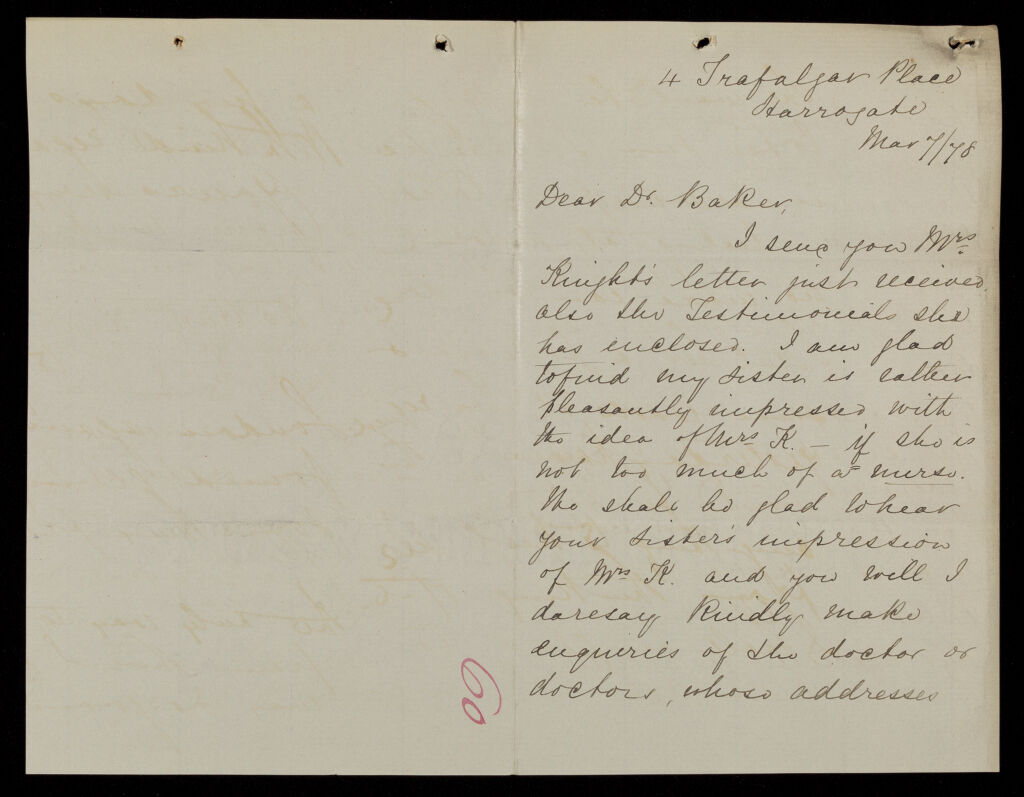 4 Trafalgar Place
Harrogate
Mar 7/78
Dear Dr. Baker,
I send you Mrs
Knight's letter just received
also the Testimonials she
has enclosed. I am glad
to find my sister is rather
pleasantly impressed with
the idea of Mrs K. – if she is
not too much of a nurse.
We shall be glad to hear
your sister's impression
of Mrs K. and you will I
daresay kindly make
enquiries of the doctor or
doctors, whose addresses
60